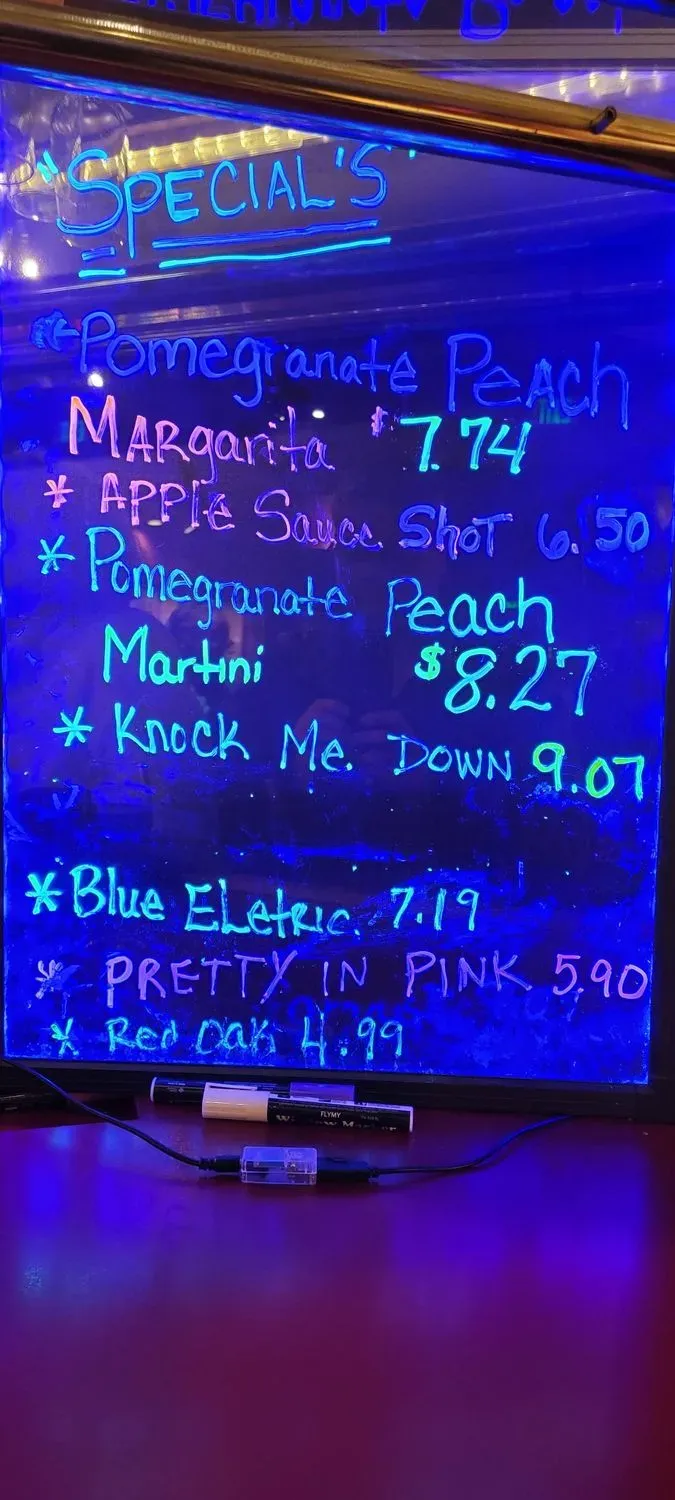 "SPECIAL'S"
*Pomegranate Peach
Margarita $7.74
* Apple Sauce Shot 6.50
* Pomegranate Peach
Martini $8.27
* Knock Me Down 9.07
*Blue Eletric 7.19
* PRETTY IN PINK 5.90
* Red Oak 4.99
FLYMY